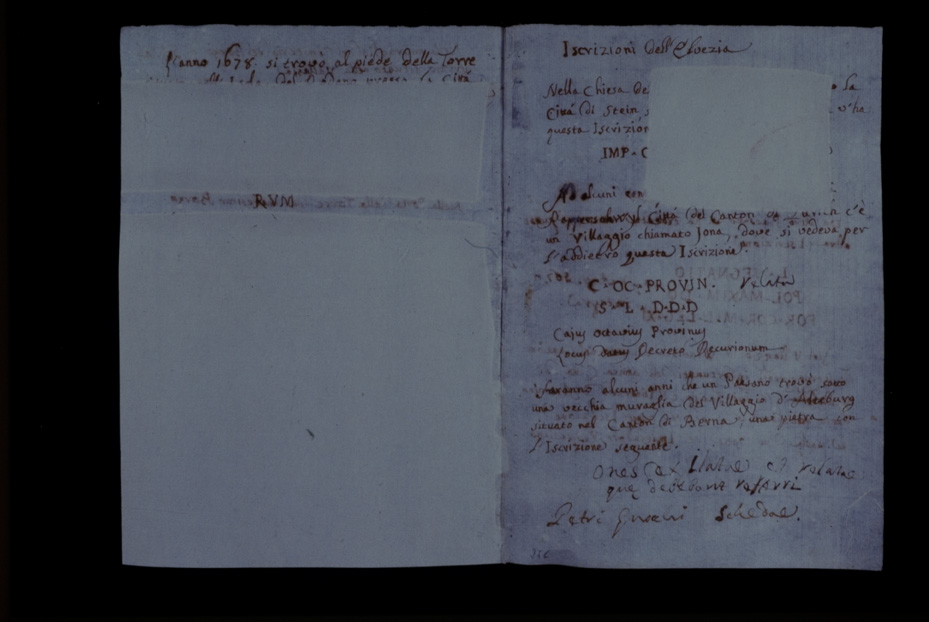 L'anno 1678 si trovò al piede della Torre
RVM
Iscrizioni dell'Elvezia
Nella Chiesa de
la
Città di Stein s
v'ha
questa Iscrizion
IMP. C
Ad alcuni
Città del Canton di Zurich c'è
un Villaggio chiamato Jona, dove si vedeva per
l'addietro questa Iscrizione.
C. OC. PROVIN. relata
S. L. D.D.D
Cajus Octavius Provinus
Locus datus Decreto Decurionum
Saranno alcuni anni che un Paesano trovò sotto
una vecchia muraglia del Villaggio d'Alteburg
situato nel Canton di Berna, una pietra con
l'Iscrizione seguente.
et relatae
que debebant referri
Petri schedae.